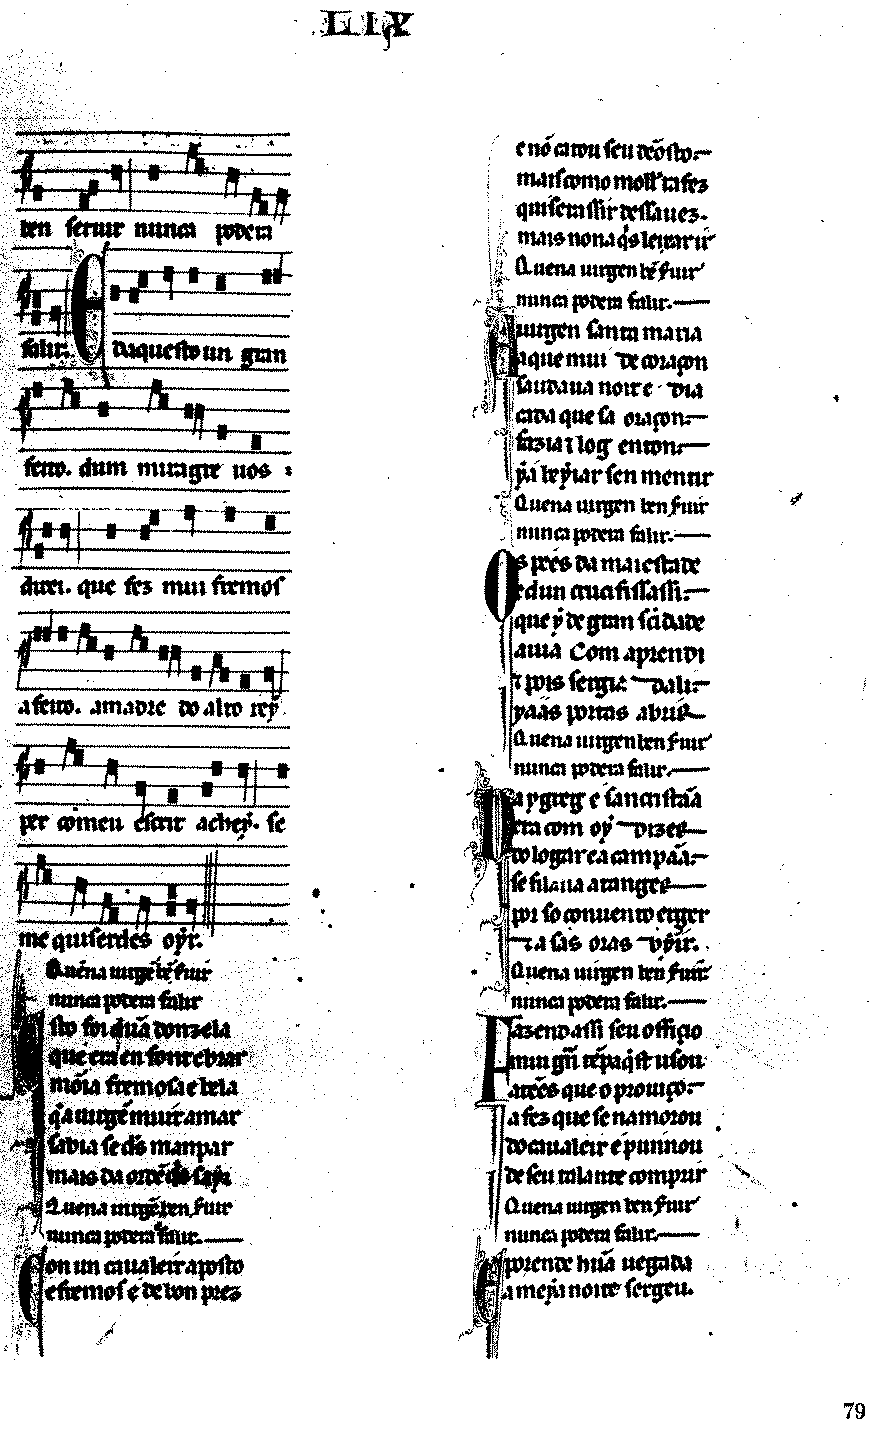 LIX
ben seruir nunca podera
falir. E daquesto un gran
feito. dum miragre uos
direi. que fez mui fremos
a feito. a madre do alto rey
per comeu escrit achey. se
me quiserdes oyr.
Quena uirgẽ bẽ s̕uir
nunca podera falir
sto foi dũa donzela
que era en fontebrar
mõia fremosa e bela
q̇ a uirgẽ muir amar
sabia se ds̃ manpar
mais da ordẽ
Quena uirgẽ ben s̕uir
nunca podera falir.
Con un caualeir aposto
e fremos e de bon prez
e nõ catou seu dẽosto.
mais como moll̕ ta fez
quisera ss ir dessa uez.
mais nona q̇s leixar ir
Quena uirgen bẽ s̕uir
nunca podera falir.
A uirgen santa maria
a que mui de coraçon
saudaua noit e dia
cada que sa oraçon.
fazia ⁊ log enton.
ẏa beẏiar sen mentir
Quena uirgen ben s̕uir
nunca podera falir.
Os pees da maiestade
e dun crucifiss assi.
que ẏ de gran sc̃idade
auia Com aprendi
⁊ pois sergia dali.
ẏa ãs portas abrir
Quena uirgen ben s̕uir
nunca podera falir.
Da ygreg e sancristãa
era com oẏ dizer
do logar e a campãa.
se fillaua a tanger
por so conuento erger
⁊ a sas oras vĩir.
Quena uirgen ben s̕uir
nunca podera falir.
Fazend assi seu offiçio
mui grã tẽpa q̇st usou
atẽes que o prouiço.
a fez que se namorou
do caualeir e punnou
de seu talante comprir
Quena uirgen ben s̕uir
nunca podera falir.
E porende hũa uegada
a meẏa noite sergeu.
79